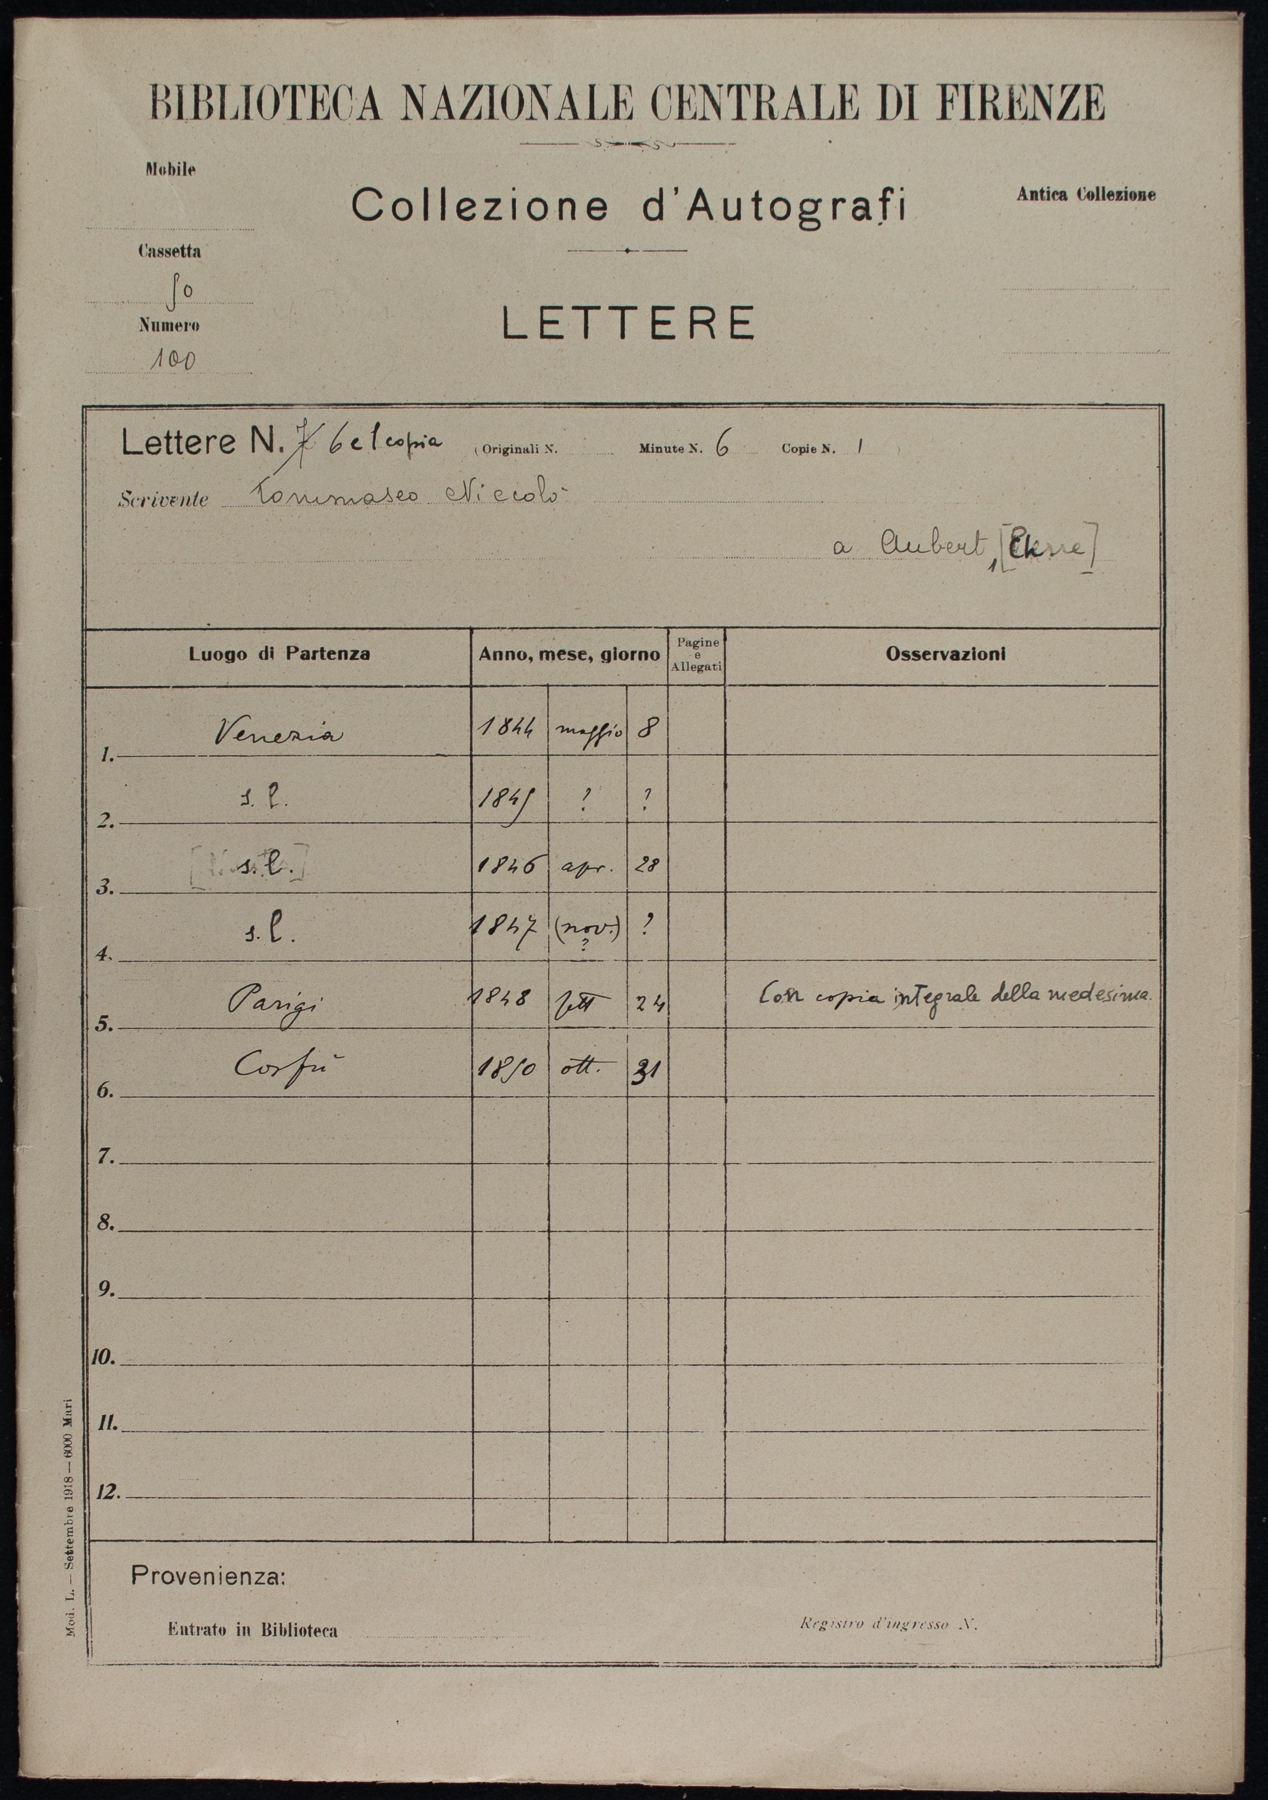 BIBLIOTECA NAZIONALE CENTRALE DI FIRENZE
Mobile
Collezione d'Autografi
Antica Collezione
Cassetta
50
LETTERE
Numero
100
Lettere N. 7 6 e 1 copia (Originali N. Minute N. 6 Copie N. 1 )
Scrivente Tommaseo Niccolò
a Aubert, []
Luogo di Partenza Anno, mese, giorno Pagine e Allegati Osservazioni
1. Venezia 1844 maggio 8
2. s. l. 1845 ? ?
3. s. l. 1846 apr. 28
4. s. l. 1847 (nov.) ? ?
5. Parigi 1848 sett 24 Con copia integrale della medesima.
6. Corfù 1850 ott. 31
7.
8.
9.
10.
11.
12.
Provenienza:
Entrato in Biblioteca Registro d'ingresso N.
Mod. L. — Settembre 1918 — 6000 Mari